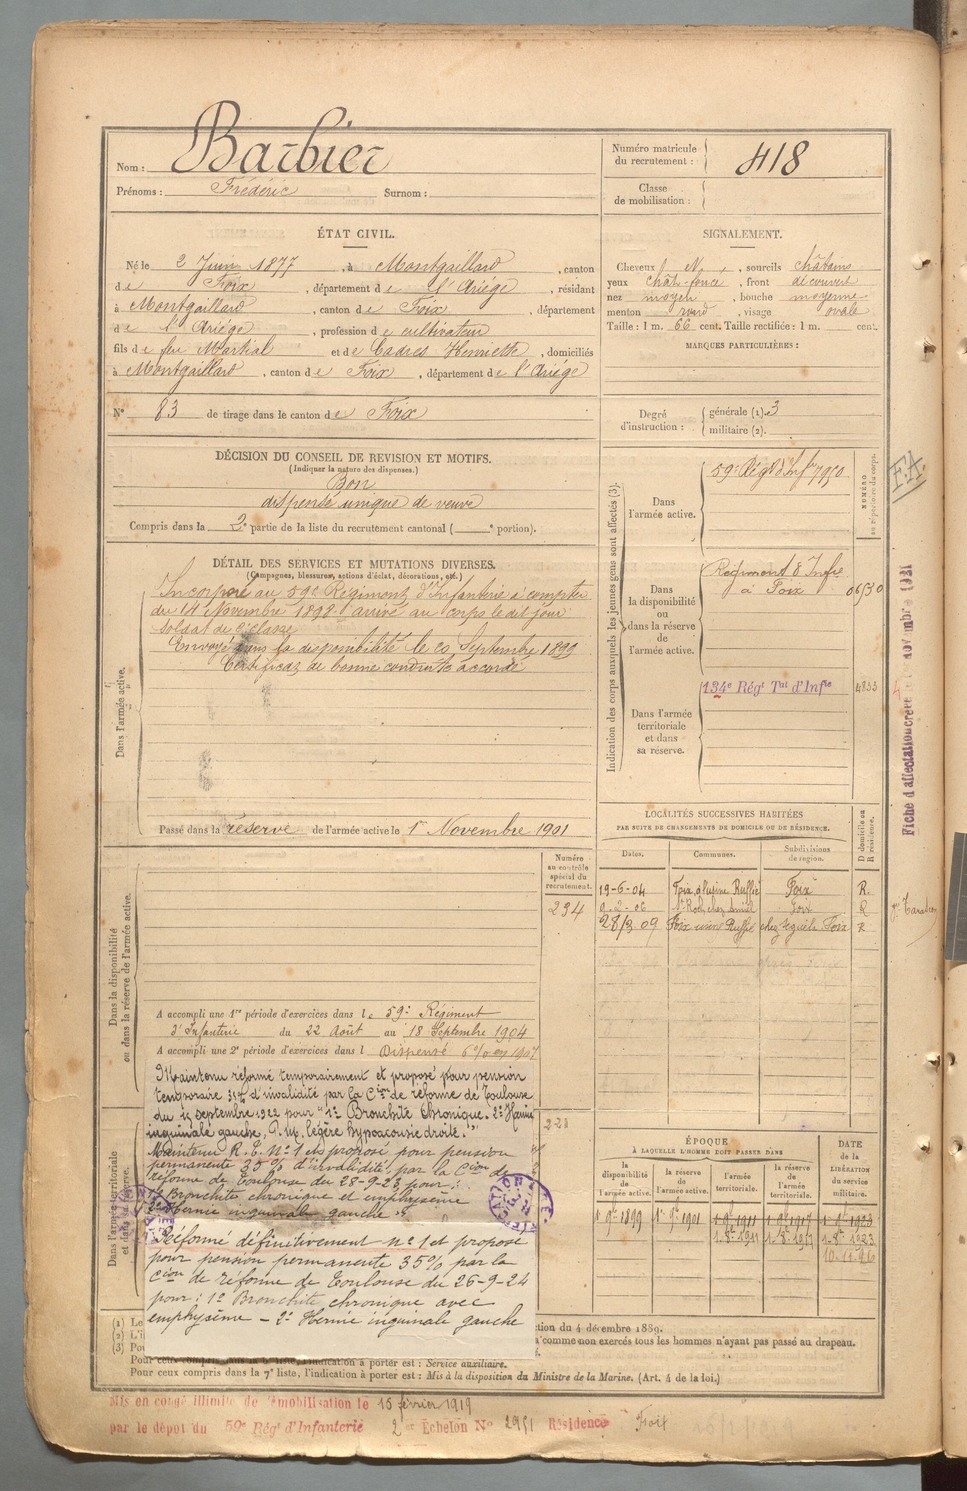 Nom : Barbier
Prénoms : Frédéric Surnom :
Numéro matricule
du recrutement : 418
Classe
de mobilisation :
ÉTAT CIVIL.
Né le 2 Juin 1877, à Montgaillard, canton
de Foix, département de l'Ariège, résidant
à Montgaillard, canton de Foix, département
de l'Ariège, profession de cultivateur
fils de feu Martial et de Cadres Henriette, domiciliés
à Montgaillard, canton de Foix, département de l'Ariège
N° 83 de tirage dans le canton de Foix
SIGNALEMENT.
Cheveux N, sourcils châtains
yeux chât. foncé, front découvert
nez moyen, bouche moyenne
menton rond, visage ovale
Taille : 1 m. 66 cent. Taille rectifiée : 1 m. cent.
MARQUES PARTICULIÈRES :
Degré
d'instruction :
générale (1). 3
militaire (2).
DÉCISION DU CONSEIL DE REVISION ET MOTIFS.
(Indiquer la nature des dispenses.)
Bon
dispensé unique de veuve
Compris dans la 2e partie de la liste du recrutement cantonal ( e portion).
DÉTAIL DES SERVICES ET MUTATIONS DIVERSES.
(Campagnes, blessures, actions d'éclat, décorations, etc.)
Dans l'armée active.
Incorporé au 59e Régiment d'Infanterie à compter
du 14 Novembre 1898 arrivé au corps le dit jour
soldat de 2e classe
Envoyé dans la disponibilité le 20 Septembre 1899
Certificat de bonne conduite accordé
Passé dans la réserve de l'armée active le 1er Novembre 1901
Indication des corps auxquels les jeunes gens sont affectés (3).
NUMÉRO
au répertoire du corps.
Dans
l'armée active.
59e Régt d'Inf 7950
Dans
la disponibilité
ou
dans la réserve
de
l'armée active.
Régiment d'Infie
à Foix
Dans l'armée
territoriale
et dans
sa réserve.
134e Régt Tal d'Infie 4833
F.A.
Fiche d'affectation créée novembre 1921
LOCALITÉS SUCCESSIVES HABITÉES
PAR SUITE DE CHANGEMENTS DE DOMICILE OU DE RÉSIDENCE.
Dates. Communes. Subdivisions
de région. D domicile ou
R résidence.
19-6-04 Foix, à l'usine Ruffié Foix R.
9-2-06 St Roch, chez Foix R
28/3 09 Foix usine Ruffié Foix R
Dans la disponibilité
ou dans la réserve de l'armée active.
Numéro
au contrôle
spécial du
recrutement.
234
A accompli une 1re période d'exercices dans le 59e Régiment
d'Infanterie du 22 Août au 18 Septembre 1904
A accompli une 2e période d'exercices dans l Dispensé 6% en 1907
Maintenu réformé temporairement et proposé pour pension
temporaire d'invalidité par la Cion de réforme de Toulouse
du septembre 1922 pour "1° Bronchite chronique. 2° Hernie
inguinale gauche, P.M. légère hypoacousie droite."
Maintenu R.T. N° 1 et proposé pour pension
permanente 35% d'invalidité par la Cion de
réforme de Toulouse du 28-9-23 pour :
1° Bronchite chronique et emphysème
2° Hernie inguinale gauche
Réformé définitivement n° 1 et proposé
pour pension permanente 35% par la
Cion de réforme de Toulouse du 26-9-24
pour : 1° Bronchite chronique avec
emphysème – 2° Hernie inguinale gauche
Dans l'armée territoriale
et dans sa réserve.
ÉPOQUE
À LAQUELLE L'HOMME DOIT PASSER DANS
DATE
de la
LIBÉRATION
du service
militaire.
la
disponibilité
de
l'armée active.
la réserve
de
l'armée active.
l'armée
territoriale.
la réserve
de
l'armée
territoriale.
1er 9bre 1899 1er 9bre 1901 1-9bre 1911 1-9bre 1917 1-9bre 1923
1-8bre 1911 1-8bre 1917 1-8bre 1923
(1) Le
(2) L'i
(3) Pou
ction du 4 décembre 1889.
comme non exercés tous les hommes n'ayant pas passé au drapeau.
l'indication à porter est : Service auxiliaire.
Pour ceux compris dans la 7e liste, l'indication à porter est : Mis à la disposition du Ministre de la Marine. (Art. 4 de la loi.)
Mis en congé illimité de démobilisation le 15 février 1919
par le dépôt du 59e Régt d'Infanterie 2 Échelon N° 2951 Résidence Foix